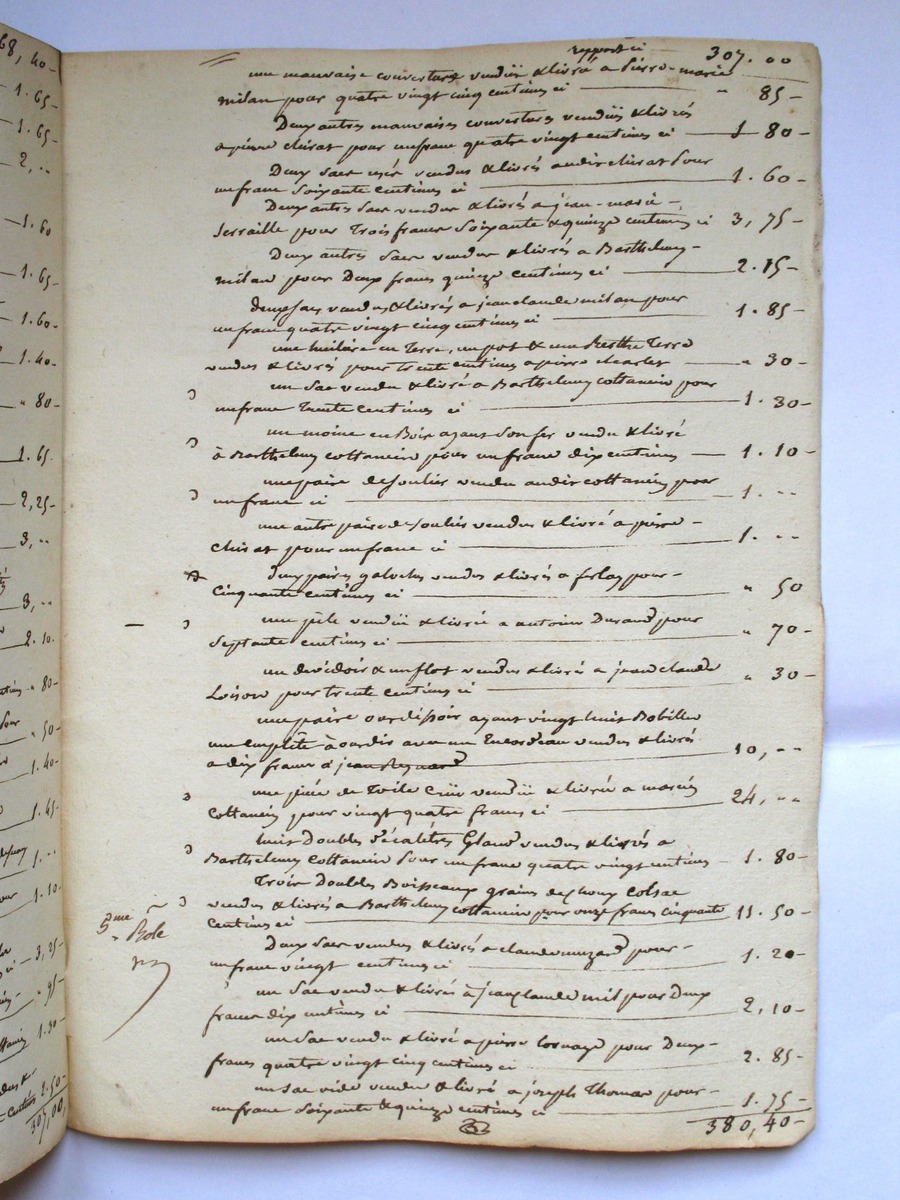 report ci 307.00
une mauvaise couverture vendüe & livré a pierre-marie
milan pour quatre vingt cinq centimes ci " 85-
Deux autres mauvaises couvertures vendües & livrés
a pierre chirat pour un franc quatre vingt centimes ci 1 80-
Deux sacs usés vendus & livrés audit chirat pour
un franc soixante centimes ci 1.60-
Deux autres sacs vendus & livrés a jean-marie
serraille pour Trois francs soixante & quinze centimes ci 3,75-
Deux autres sacs vendus & livrés a Barthelemy-
milan pour Deux francs quinze centimes ci 2.15-
deux sacs vendus & livrés a jean claude milan pour
un franc quatre vingt cinq centimes ci 1.85-
une huilaire en Terre, un pot & une Terre
vendus & livrés pour trente centimes a pierre charles " 30-
un sac vendu & livré a Barthelemy Cottancin pour
un franc trente centimes ci 1.30-
un moine en Bois ayant son fer vendu & livré
à Barthelemy Cottancin pour un franc dix centimes 1.10-
une paire de soulier vendu audit Cottancin pour
un franc ci 1. --
une autre paire de souliers vendus & livré a pierre-
chirat pour un franc ci 1. --
deux paires galoches vendus & livrés a pour-
Cinquante centimes ci " 50
une pèle vendüe & livré a antoine Durand pour
septante centimes ci " 70-
un devidoir & un flot vendus & livré a jean claude
Loison pour trente centimes ci " 30-
une paire ourdissoir ayant vingt huit Bobilles
une à ourdir avec un vendus & livrés
a dix francs a jean 10, --
une pièce de Toile Crüe vendüe & livrée a
Cottancin pour vingt quatre francs ci 24, --
huit Doubles Gland vendus & livrés a
Barthelemy Cottancin pour un franc quatre vingt centimes 1.80-
Trois Doubles Boisseaux grains de choux Colsac
vendus & livrés a Barthelemy Cottancin pour onze francs Cinquante 11.50-
centimes ci
Deux sacs vendus & livrés a claude pour-
un franc vingt centimes ci 1.20-
un sac vendu & livrés à jean claude pour Deux
francs dix centimes ci 2,10-
un sac vendu & livré a pierre pour Deux-
francs quatre vingt cinq centimes ci 2.85-
un sac vide vendu & livré a joseph Thomas pour-
un franc soixante & quinze centimes ci 1.75-
380,40-
3me
Role
68,40-
1.65-
1.65-
2, --
1.60
1.65-
1.60-
1.40-
" 80-
1.65.
2,25-
3, --
3, --
2.10.
" 80-
" 50-
1.40-
1.45-
1. --
1.10-
3,25-
" 95-
1.30-
2.50-
307,00,